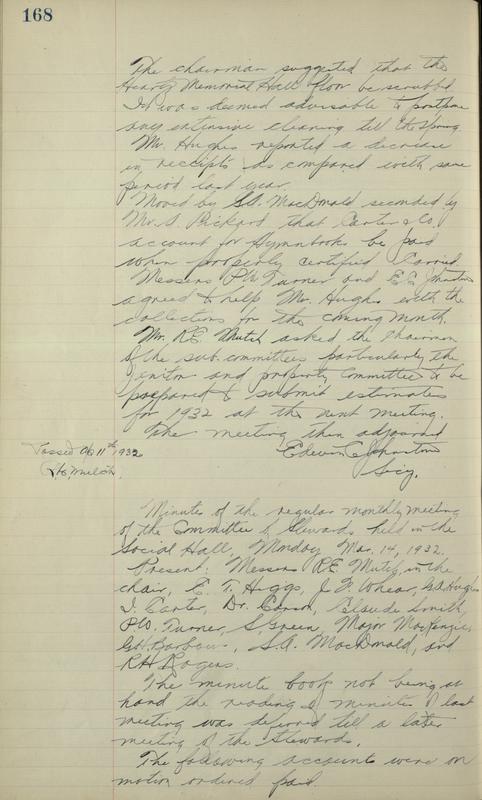 168
The chairman suggested that the
Heartz Memorial Hall floor be scrubbed
It was deemed advisable to postpone
any extensive cleaning till the Spring
Mr. Hughes reported a decrease
in receipts as compared with same
period last year.
Moved by S.A. MacDonald seconded by
Mr. S. Rickard that Carter & Co.
account for Hymnbooks be paid
when properly certified Carried
Messers P.W. Turner and E.C. Johnstone
agreed to help Mr. Hughs with the
collections for the coming month.
Mr. R.E. Mutch asked the Chairman
of the sub. committees particularly the
Jenitor and property Committee to be
prepared to submit estimates
for 1932 at the next meeting.
The meeting then adjourned
Passed Ap 11th 1932
Edwin C. Johnstone
R.E. Mutch
Secy.
Minutes of the regular monthly meeting
of the Committee of Stewards held in the
Social Hall, Monday Mar. 14, 1932.
Present: Messers R.E. Mutch in the
chair, E. T. Higgs, J. F. Whear, G.A. Hughs
I. Carter, Dr. Claude Smith,
P.W. Turner, S. Green, Major MacKenzie,
G.H. Barbour, S.A. MacDonald, and
R.H. Rogers.
The minute book not being at
hand the reading of minutes of last
meeting was deferred till a later
meeting of the Stewards.
The following accounts were on
motion ordered paid.